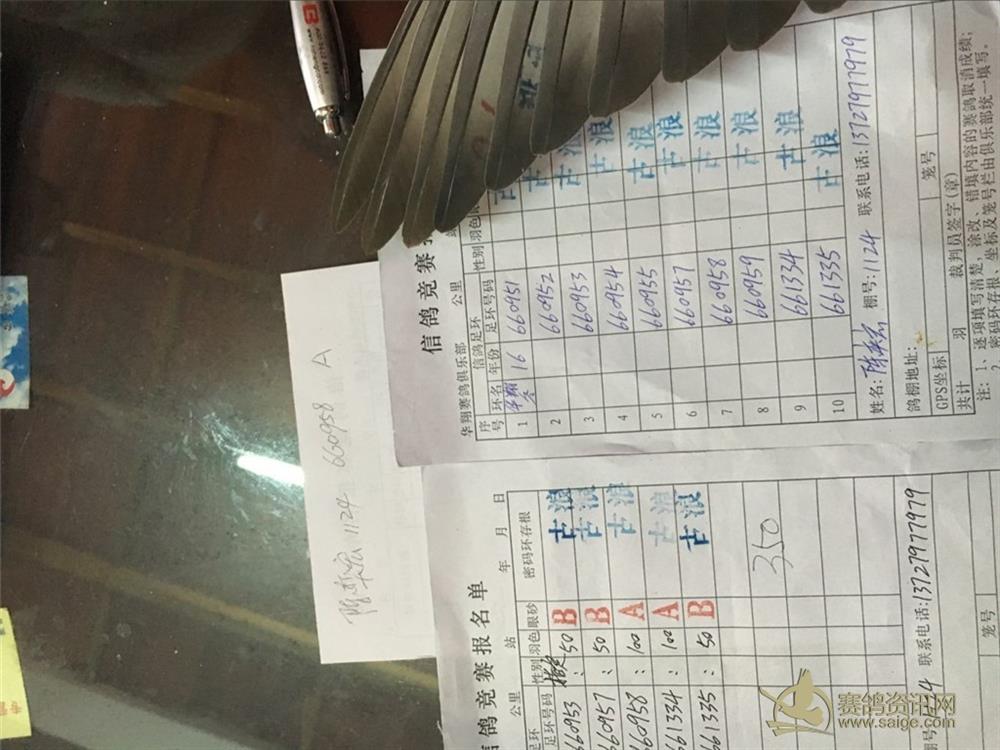 信鸽竞赛报
华翔赛鸽俱乐部 公里 站
序号 环名 年份 信鸽足环 足环号码 性别 羽色
1 16 660951
2 660952 古浪
3 660953 古浪
4 660954 古浪
5 660955 古浪
6 660957 古浪
7 660958 古浪
8 660959 古浪
9 661334 古浪
10 661335 古浪
姓名: 棚号:1124 联系电话:13727977979
鸽棚地址:
GPS坐标 笼号
共计 羽 裁判员签字(章)
注: 1、逐项填写清楚, 涂改、错填内容的赛鸽取消成绩;
2、密码环存根、坐标及笼号栏由俱乐部统一填写。
1124 660958 A
信鸽竞赛报名单
公里 站 年 月 日
足环 足环号码 性别 羽色 眼砂 密码环存根
660953 : 50 B 古浪
660957 : 50 B 古浪
660958 : 100 A 古浪
661334 : 100 A 古浪
661335 : 50 B 古浪
350
棚号:1124 联系电话:13727977979
笼号
赛鸽资讯网
www.saige.com